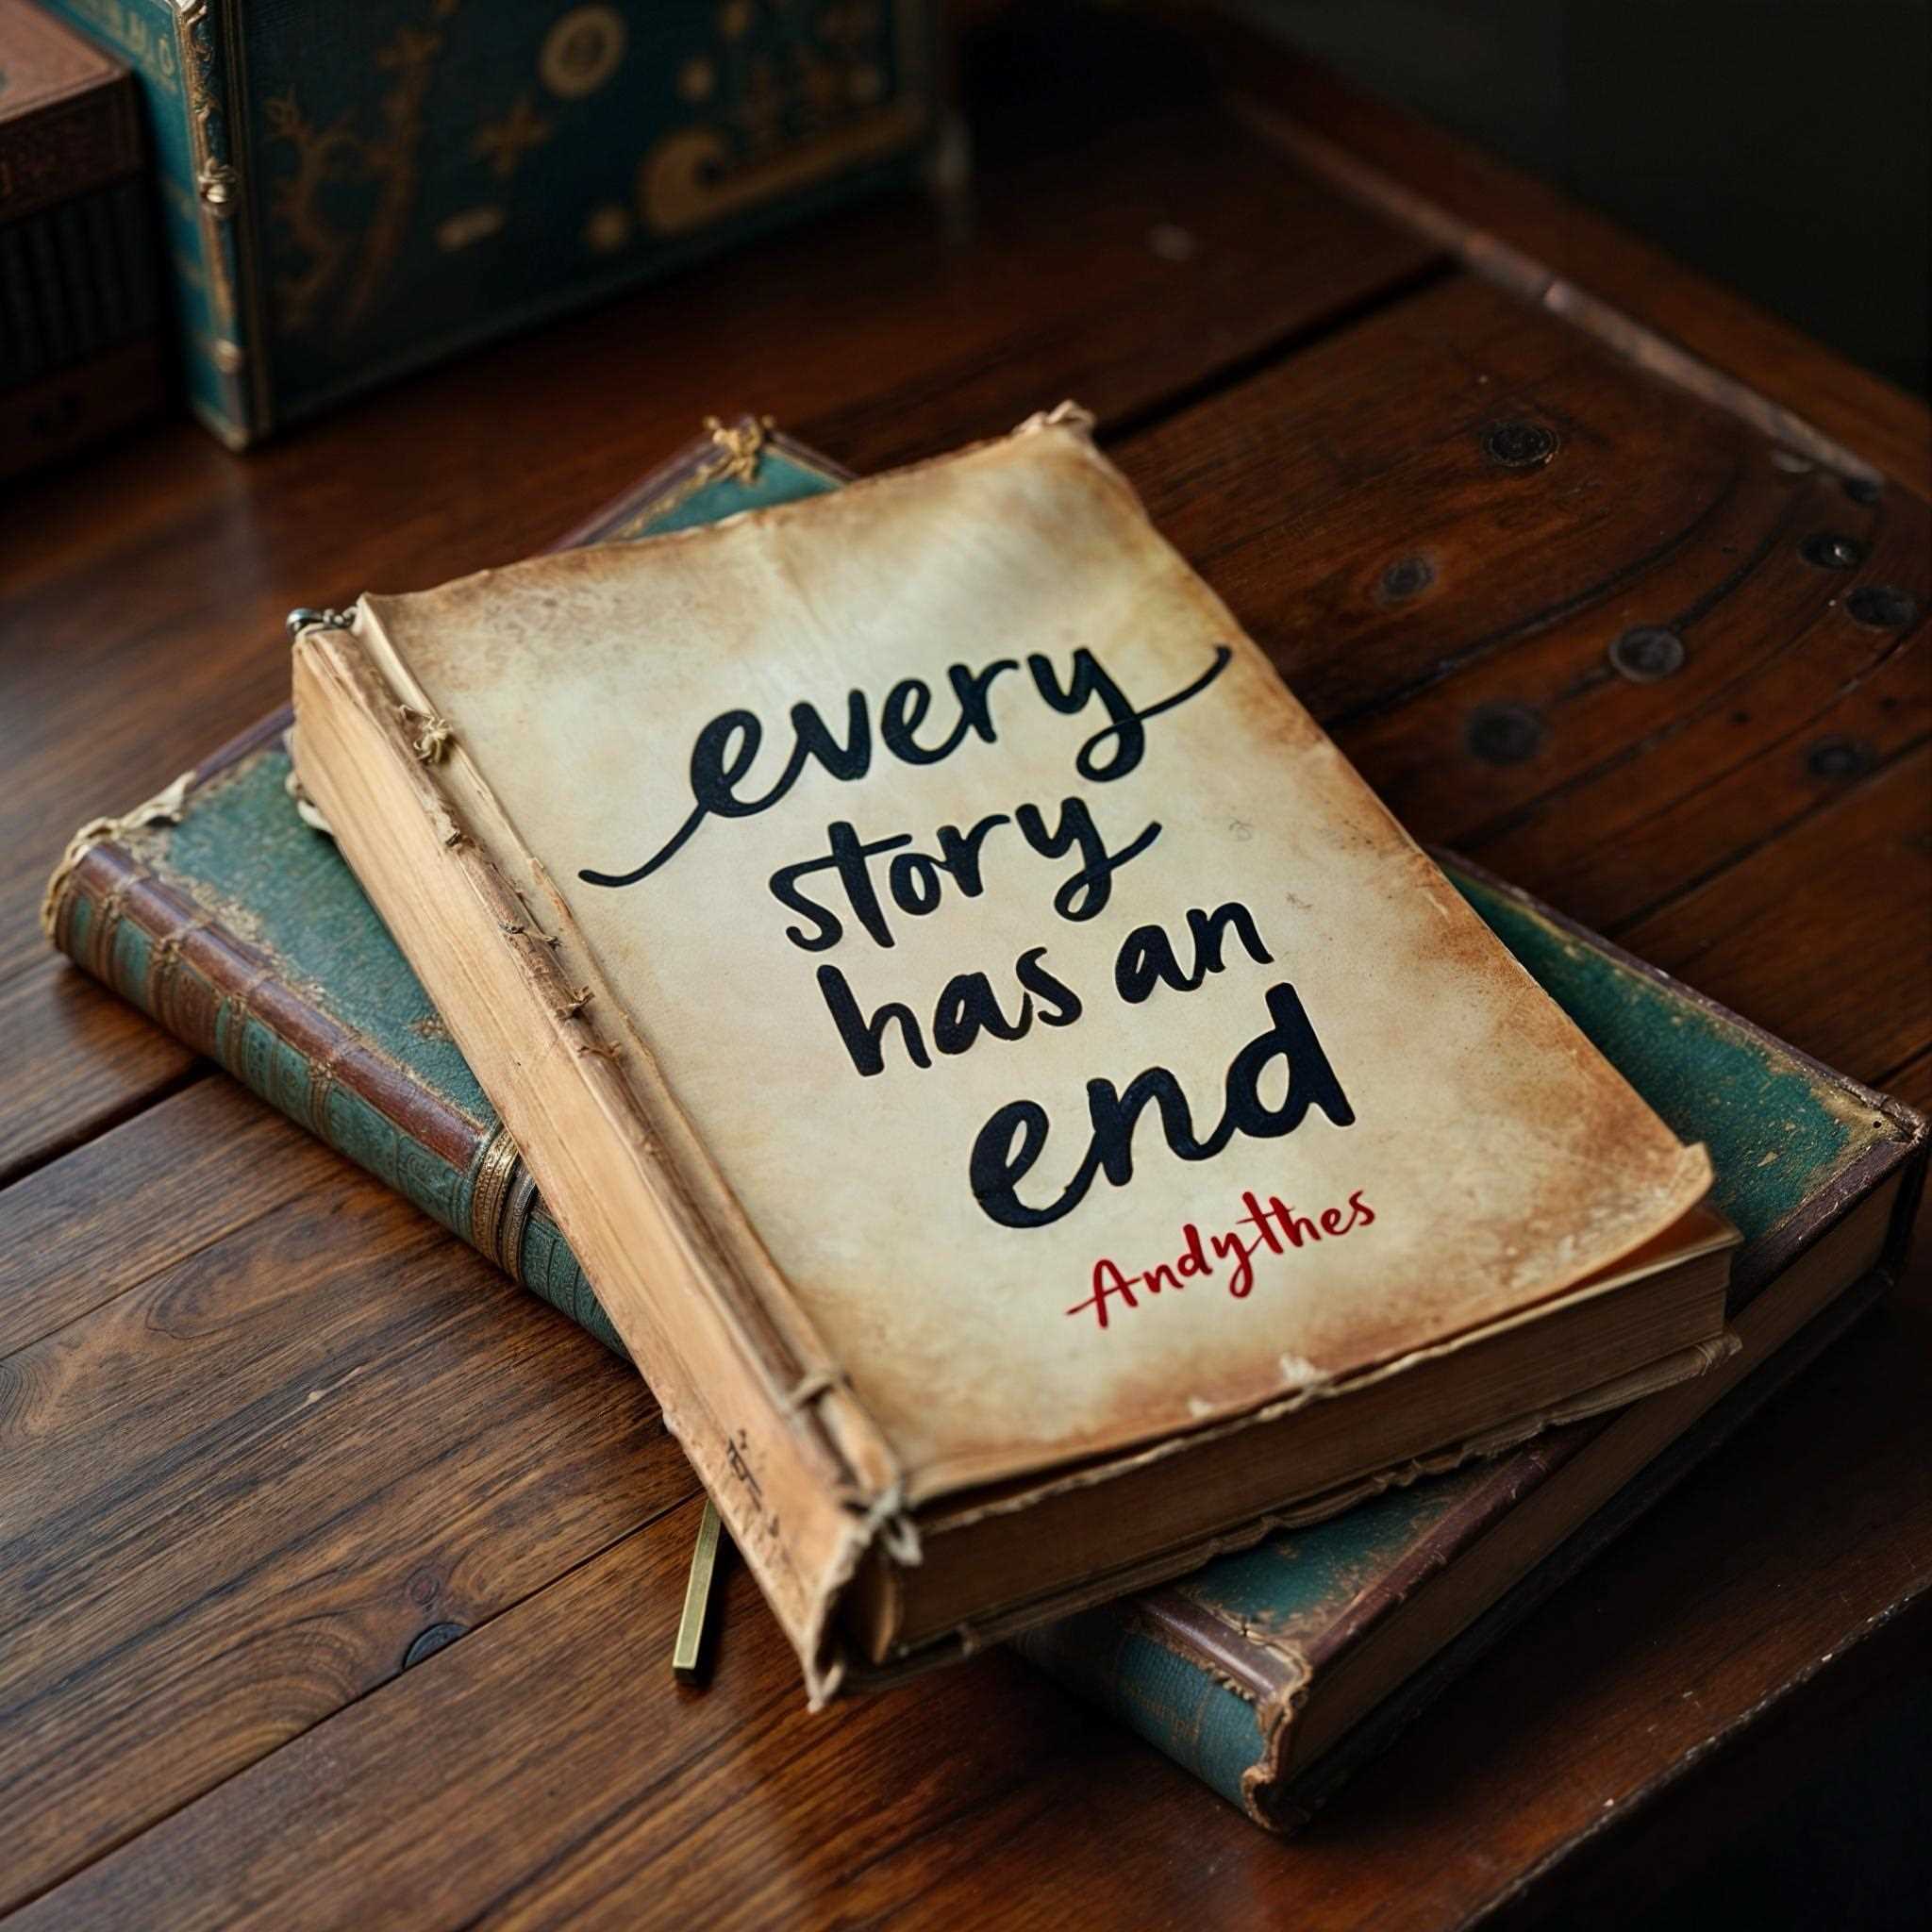 every
story
has an
end
Andythes